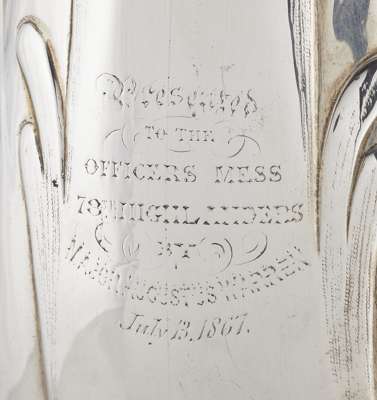 Presented
TO THE
OFFICERS MESS
78TH HIGHLANDERS
BY
MAJOR AUGUSTUS WARREN
July 13, 1867.